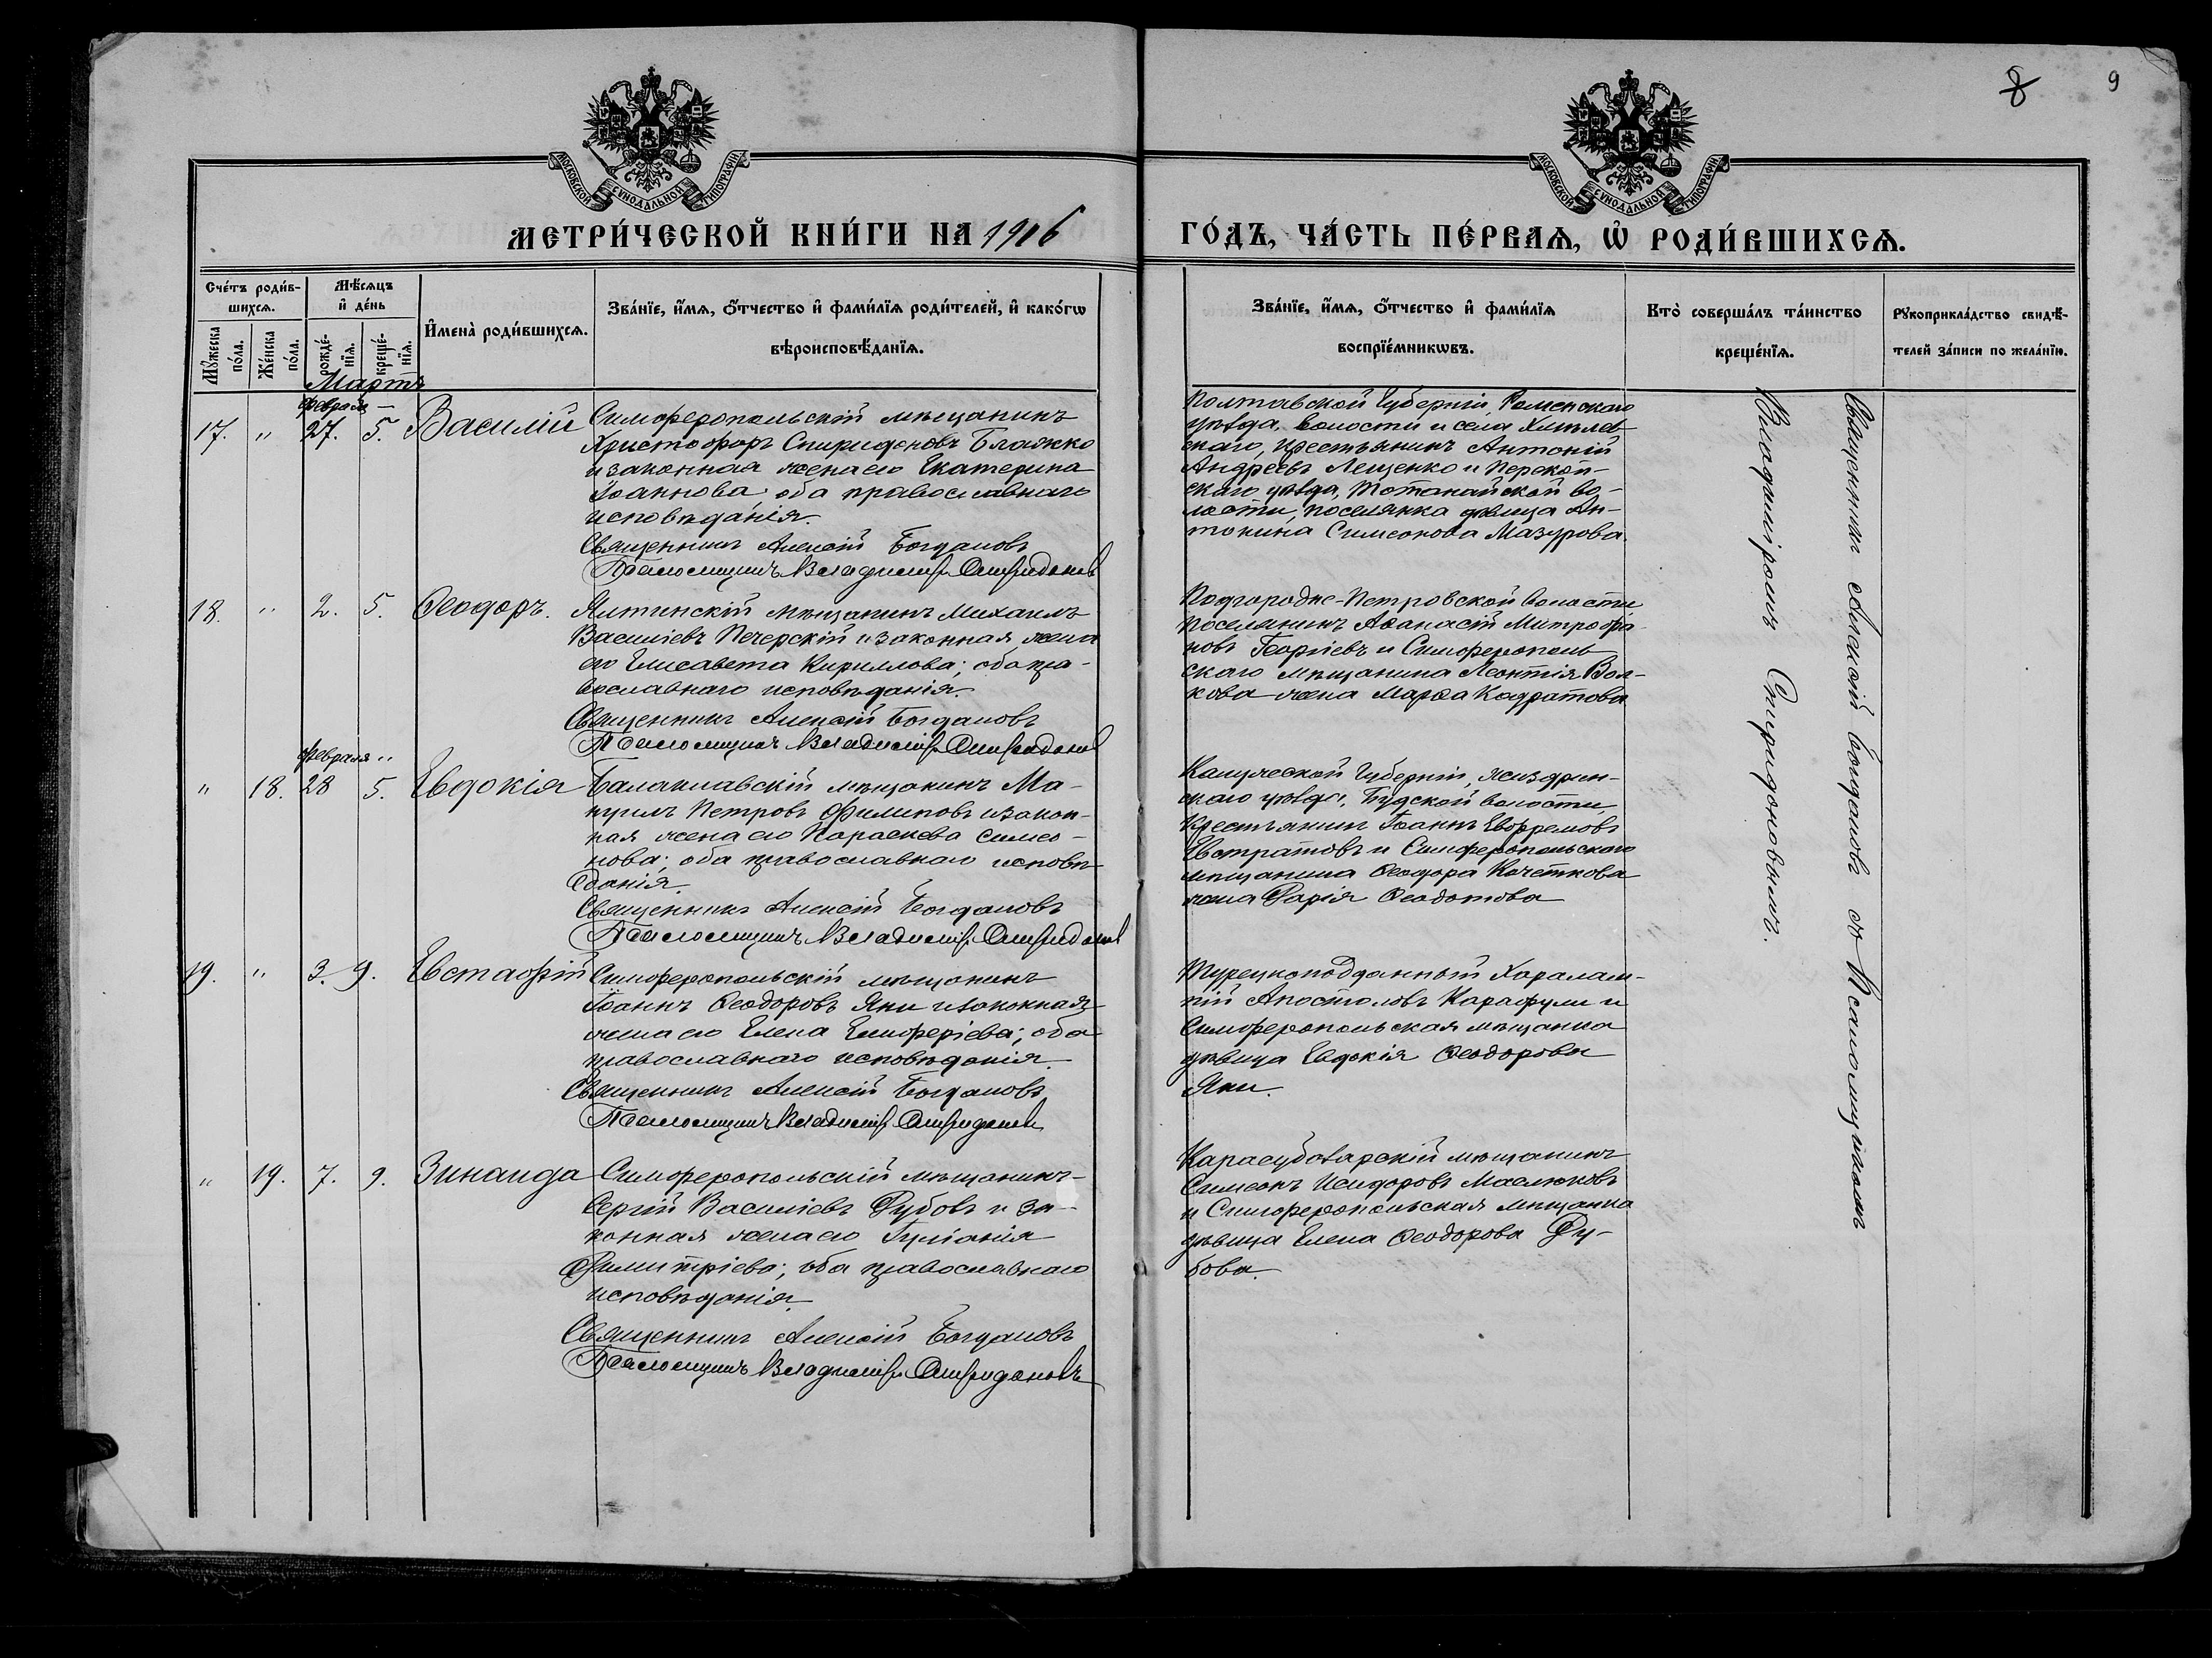 8 9
МОСКОВСКОЙ СѴНОДАЛЬНОЙ ТИПОГРАФІИ
МОСКОВСКОЙ СѴНОДАЛЬНОЙ ТИПОГРАФІИ
МЕТРИ́ЧЕСКОЙ КНИ́ГИ НА 1916
ГО́ДЪ, ЧА́СТЬ ПЕ́РВАѦ, Ѡ҆ РОДИ́ВШИХСѦ.
Сче́тъ роди́в-
шихсѧ.
Мꙋ́жеска по́ла.
Же́нска по́ла.
Мѣ́сѧцъ
и҆ де́нь
рожде́-нїѧ.
креще́-нїѧ.
И҆мена̀ роди́вшихсѧ.
Зва́нїе, и҆́мѧ, ѻ҆́тчество и҆ фами́лїѧ роди́телей, и҆ како́гѡ
вѣроисповѣ́данїѧ.
Зва́нїе, и҆́мѧ, ѻ҆́тчество и҆ фами́лїѧ
воспрїе́мникѡвъ.
Кто̀ соверша́лъ та́инство
креще́нїѧ.
Рꙋкоприкла́дство свидѣ́-
телей за́писи по жела́нїю.
Мартъ
февраля –
17. " 27. 5. Василій
Симферопольскій мѣщанинъ
Христофоръ Спиридоновъ Блажко
и законная жена его Екатерина
Іоаннова оба православнаго
исповѣданія.
Священникъ Алексій Богдановъ
Псаломщикъ Владиміръ Спиридоновъ
Полтавской Губерніи, Роменскаго
уѣзда, волости и села Хмѣлев-
скаго, крестьянинъ Антоній
Андреевъ Лещенко и Перекоп-
скаго уѣзда, Тотанайской во-
лости, поселянка дѣвица Ан-
тонина Симеонова Мазурова.
18. " 2. 5. Ѳеодоръ.
Ялтинскій мѣщанинъ Михаилъ
Василіевъ Печерскій и законная жена
его Елисавета Кириллова; оба пра-
вославнаго исповѣданія.
Священникъ Алексій Богдановъ
Псаломщикъ Владиміръ Спиридоновъ
Подгородне-Петровской волости
поселянинъ Аѳанасій Митрофа-
новъ Георгіевъ и Симферополь
скаго мѣщанина Леонтія Вол-
кова жена Марѳа Кодратова
февраля "
" 18. 28 5. Евдокія
Балаклавскій мѣщанинъ Ма-
нуилъ Петровъ Филиповъ и закон-
ная жена его Параскева Симео-
нова; оба православнаго исповѣ
данія.
Священникъ Алексій Богдановъ
Псаломщикъ Владиміръ Спиридоновъ
Калужской Губерніи, Жиздрин-
скаго уѣзда, Будской волости
крестьянинъ Іоаннъ Ефремовъ
Евстратовъ и Симферопольскаго
мѣщанина Ѳеодора Кочеткова
жена Дарія Ѳеодотова
19. " 3. 9. Евстафій
Симферопольскій мѣщанинъ
Іоаннъ Ѳеодоровъ Яни и законная
жена его Елена Елеферіева; оба
православнаго исповѣданія.
Священникъ Алексій Богдановъ
Псаломщикъ Владиміръ Спиридоновъ
Турецкоподданный Харалам-
пій Апостоловъ Карафули и
Симферопольская мѣщанка
дѣвица Евдокія Ѳеодорова
Яни.
" 19. 7. 9. Зинаида
Симферопольскій мѣщанинъ
Сергій Василіевъ Дубовъ и за-
конная жена его Іуліанія
Димитріева; оба православнаго
исповѣданія.
Священникъ Алексій Богдановъ
Псаломщикъ Владиміръ Спиридоновъ
Карасубазарскій мѣщанинъ
Симеонъ Исидоровъ Маслюковъ
и Симферопольская мѣщанка
дѣвица Елена Ѳеодорова Ду-
бова.
Священникъ Алексій Богдановъ съ Псаломщикомъ
Владиміромъ Спиридоновымъ.